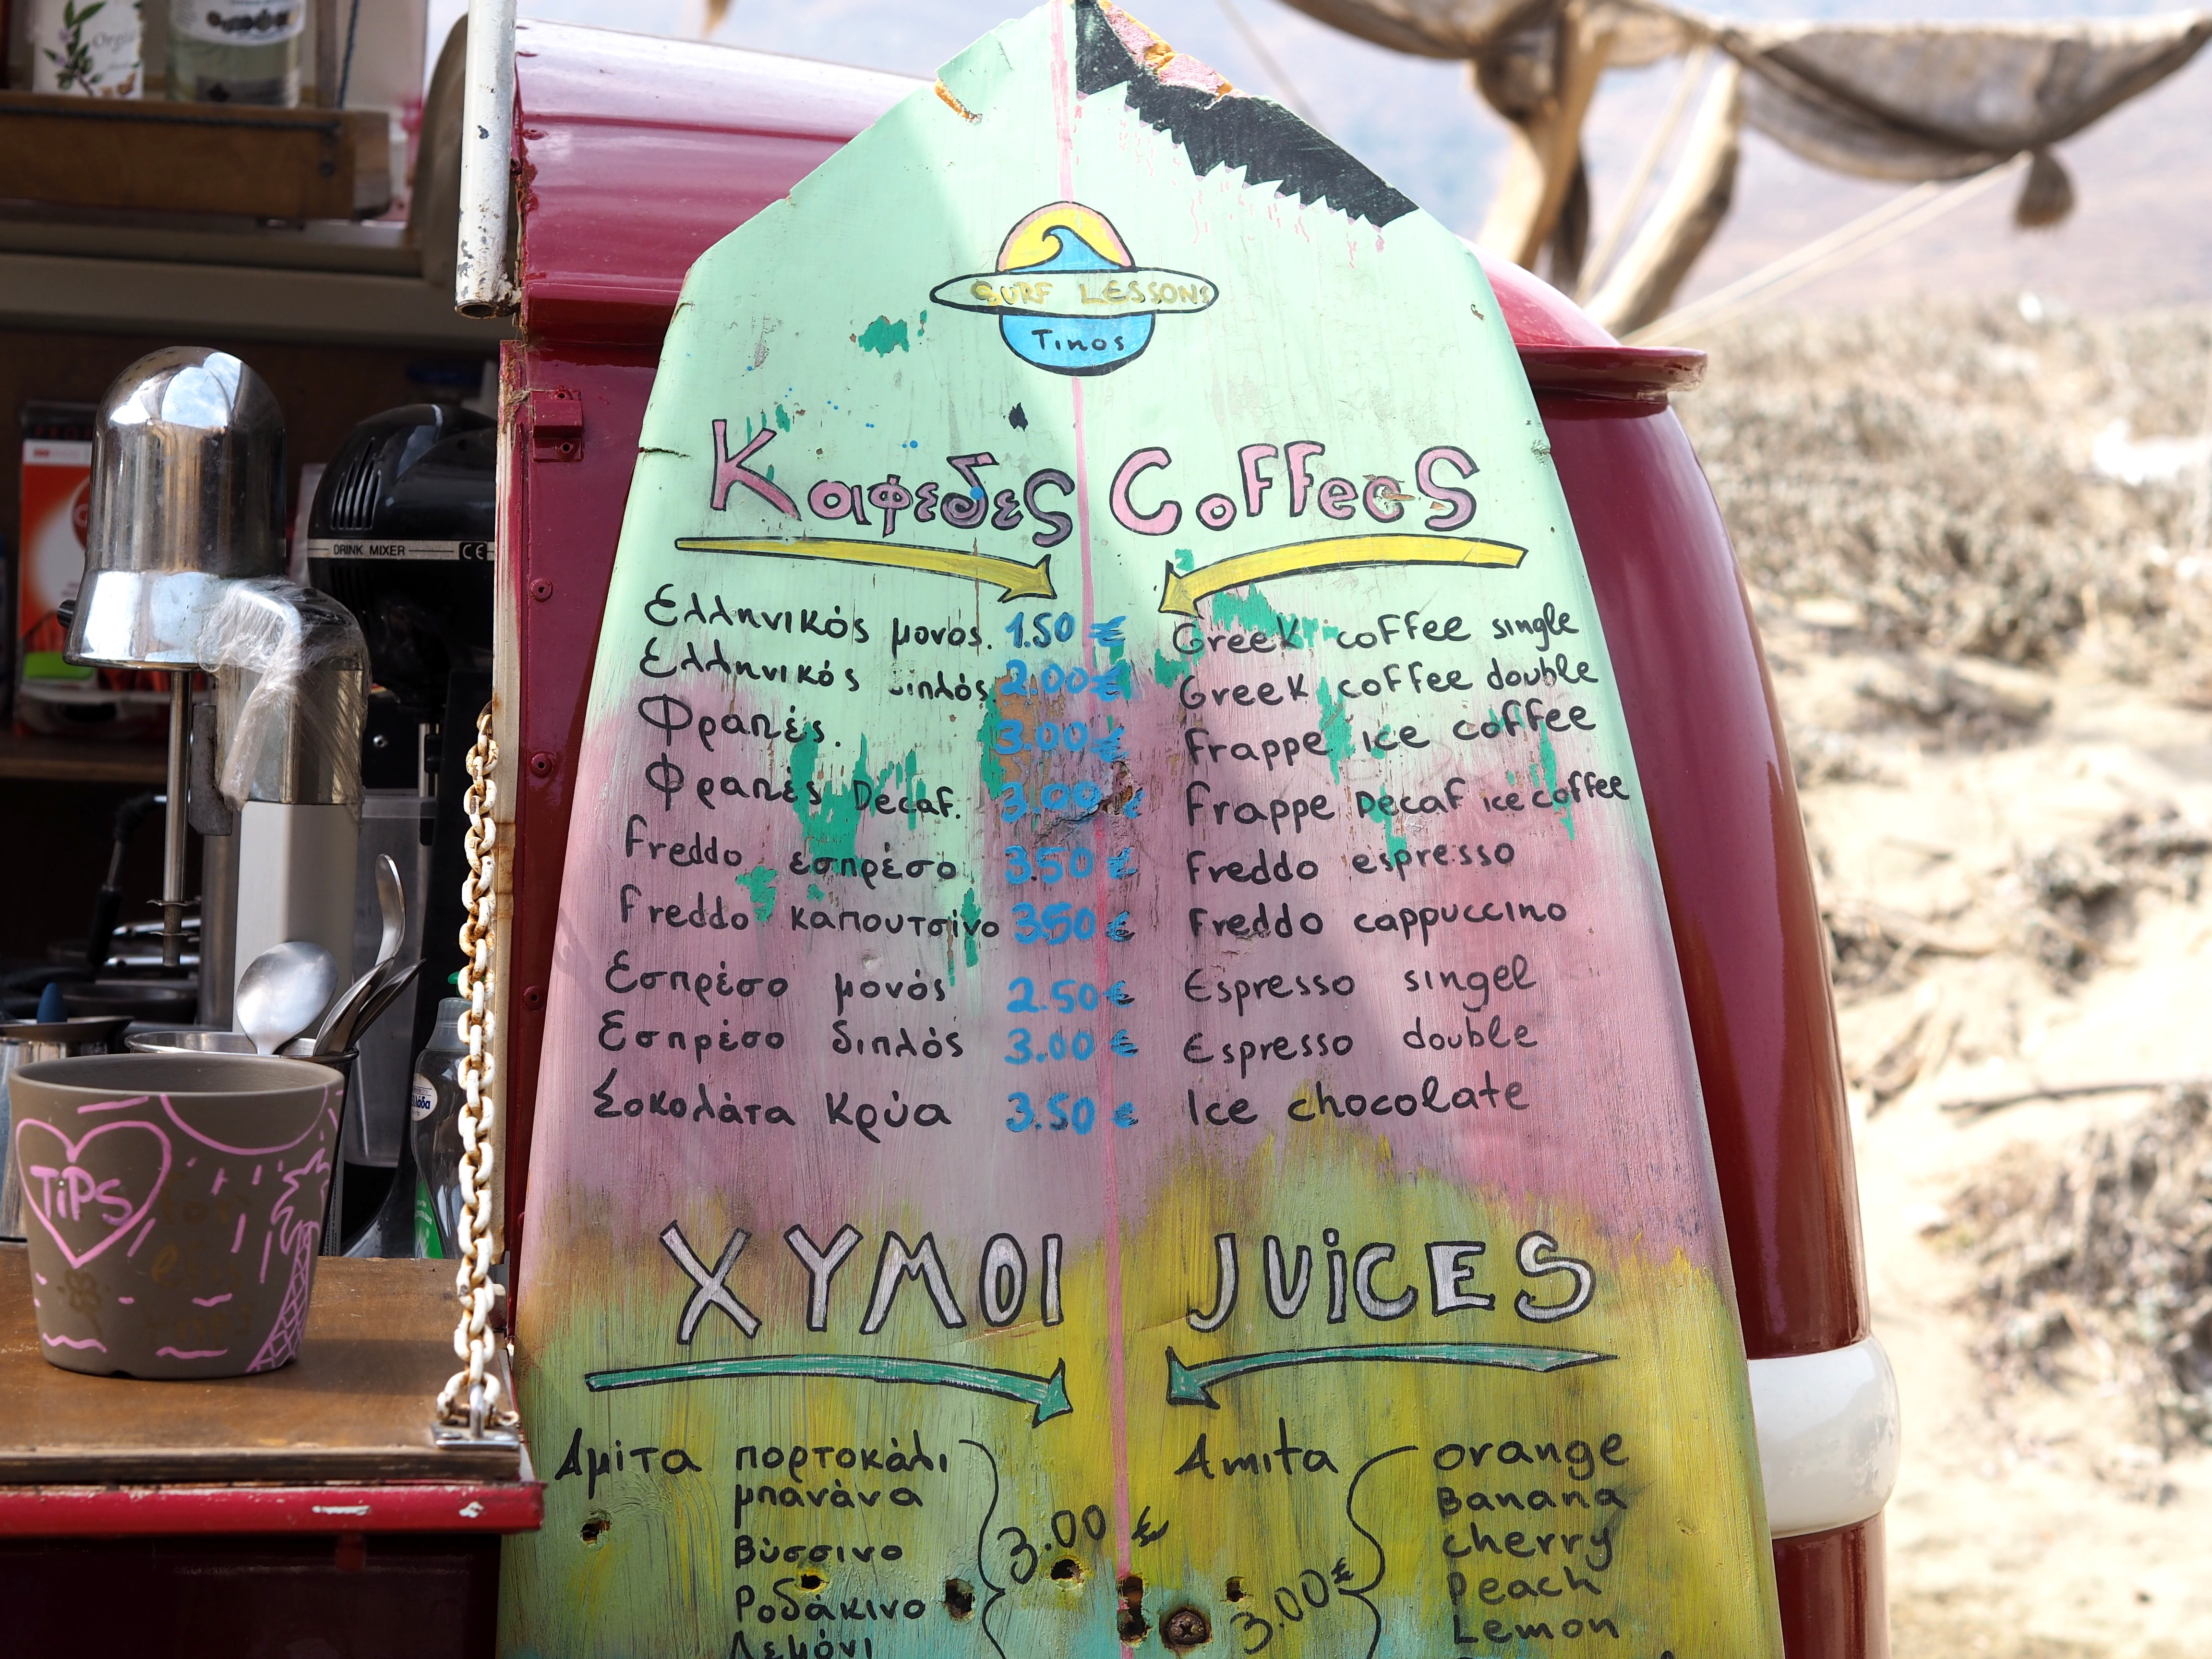 SURF LESSONS
Tinos
Καφεδες Coffees
Ελληνικός μονος. 1.50 € Greek coffee single
Ελληνικός διπλός 2.00 € Greek coffee double
Φραπές. 3.00 € Frappe ice coffee
Φραπές Decaf. 3.00 € Frappe Decaf ice coffee
Freddo εσπρέσο 3.50 € Freddo espresso
Freddo καπουτσίνο 3.50 € Freddo cappuccino
Εσπρέσο μονός 2.50 € Espresso singel
Εσπρέσο διπλός 3.00 € Espresso double
Σοκολάτα Κρύα 3.50 € Ice chocolate
ΧΥΜΟΙ JUiCES
Αμίτα πορτοκάλι Amita orange
μπανάνα Banana
Βύσσινο 3.00 € cherry
Ροδάκινο 3.00 € Peach
Λεμόνι Lemon
DRINK MIXER CE
TiPS